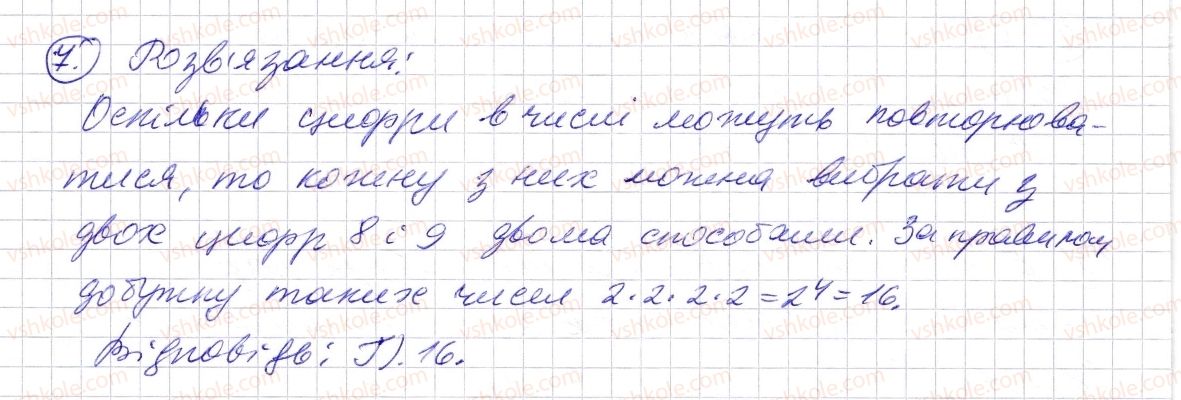 7. Розв'язання:
Оскільки цифри в числі можуть повторюва-
тися, то кожну з них можна вибрати з
двох цифр 8 і 9 двома способами. За правилом
добутку таких чисел 2·2·2·2=2⁴=16.
Відповідь: Г). 16.